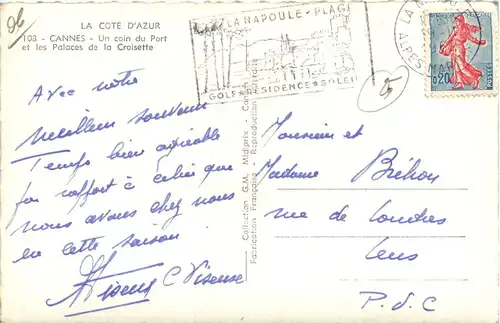 LA COTE D'AZUR
103 - CANNES - Un coin du Port
et les Palaces de la Croisette
LA NAPOULE-PLAGE
GOLF ★ RESIDENCE ★ SOLEIL
0,20
Avec notre
meilleur souvenir
Temps bien agréable
par rapport à celui que
nous avons chez nous
en cette saison
Collection G.M. Midiprix - Cannes
Fabrication Française - Reproduction
Monsieur et
Madame Bréhon
rue de Londres
Lens
P.d.C